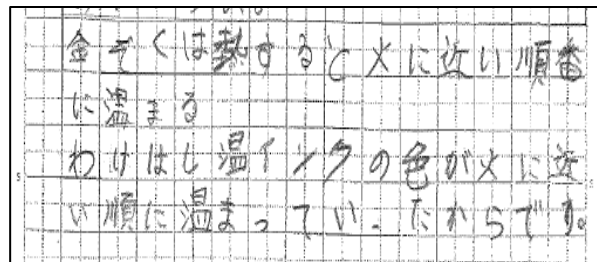 金ぞくは熱すると火に近い順番
に温まる
わけはし温インクの色が火に近
い順に温まっていったからです。